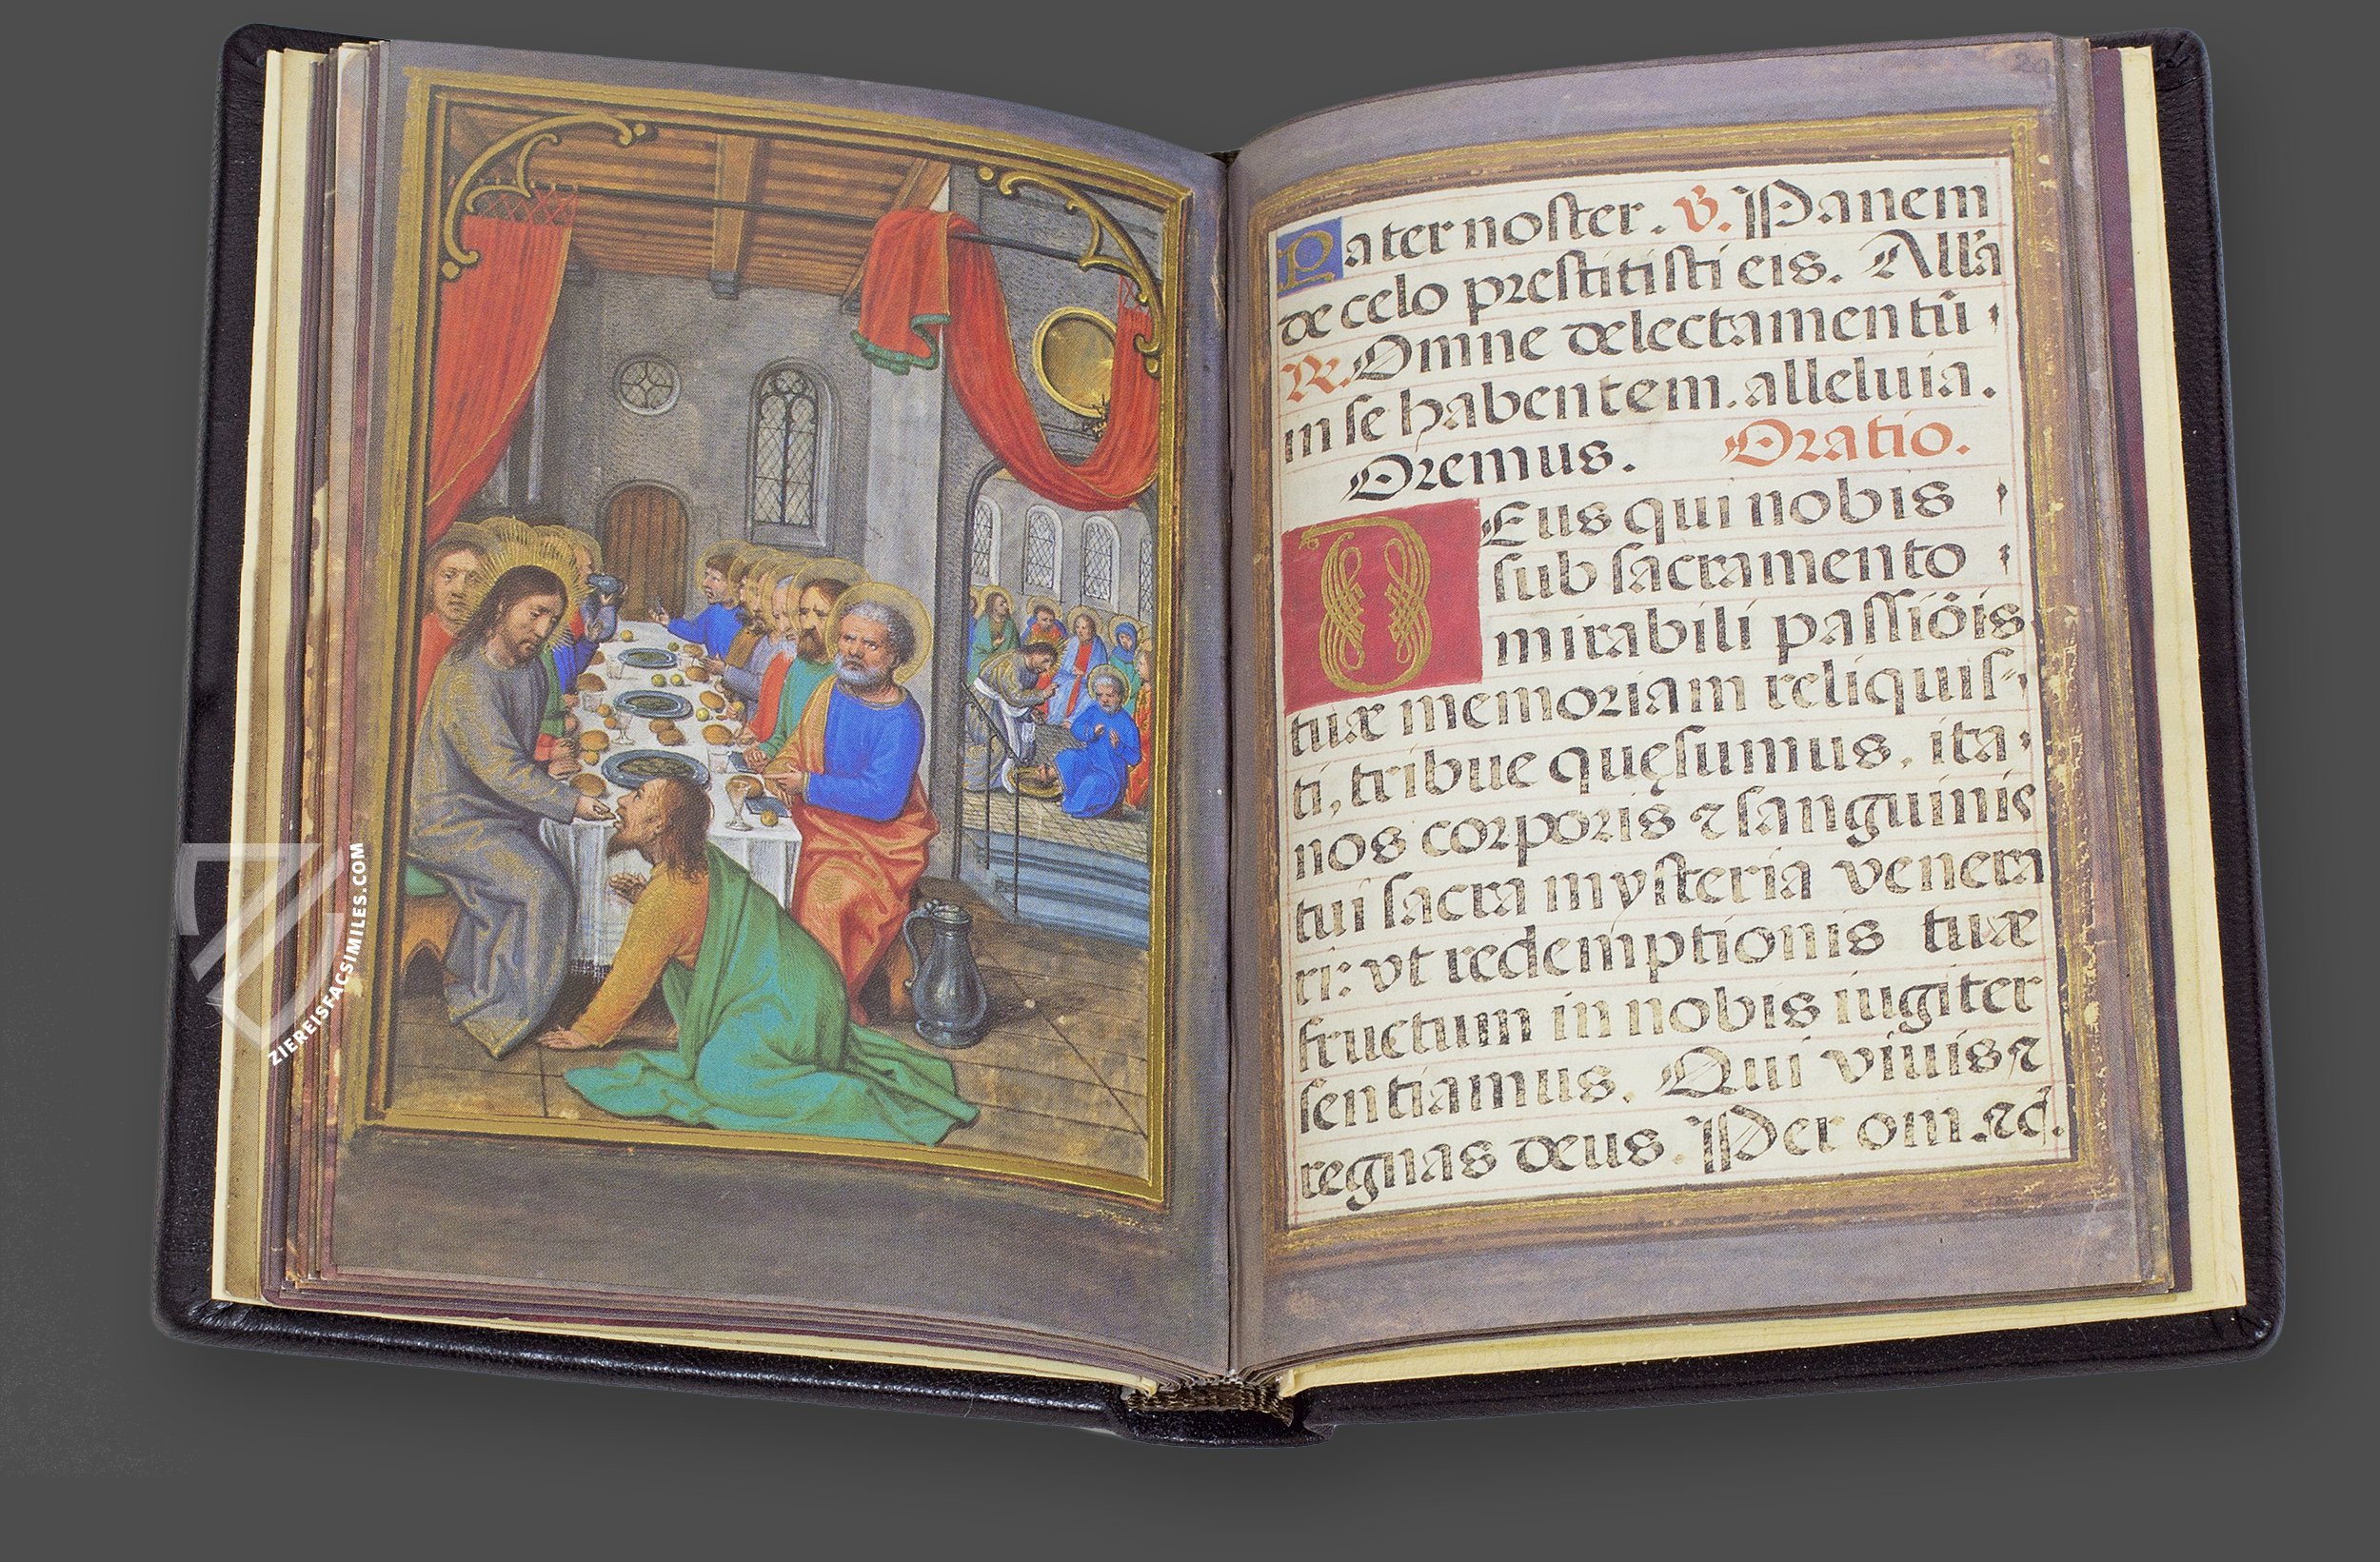 Pater noster. V. Panem
de celo prestitisti eis. Alla
R. Omne delectamentū
in se habentem. alleluia.
Oremus. Oratio.
DEus qui nobis
sub sacramento
mirabili passiōis
tuæ memoriam reliquis-
ti, tribue quęsumus, ita
nos corporis ⁊ sanguinis
tui sacra mysteria venera
ri: vt redemptionis tuæ
fructum in nobis iugiter
sentiamus. Qui viuis ⁊
regnas deus. Per om. ⁊c̄.
ZIEREISFACSIMILES.COM